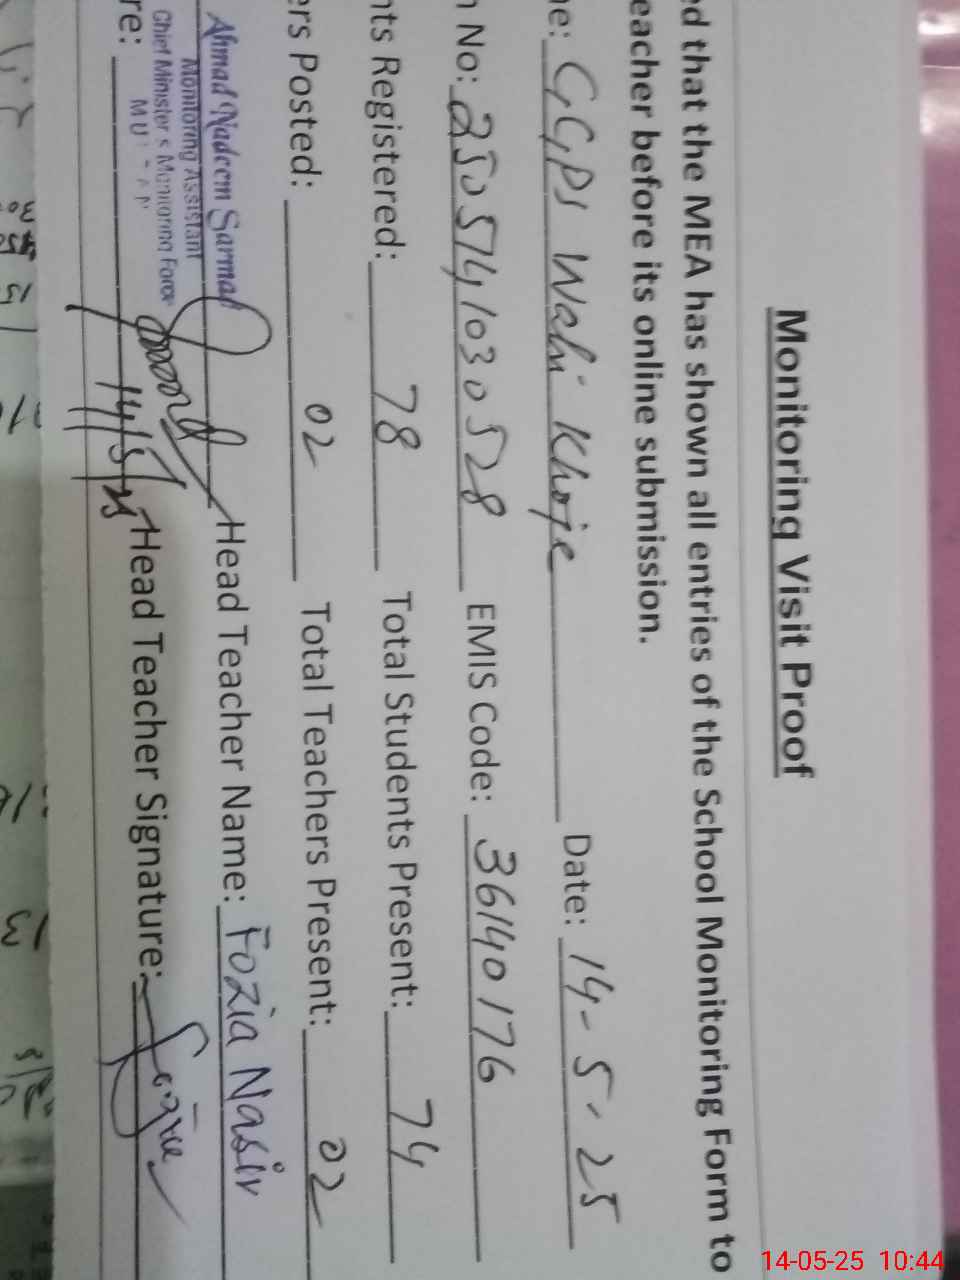 Monitoring Visit Proof
ed that the MEA has shown all entries of the School Monitoring Form to
eacher before its online submission.
ne: GGPS Wahi Khoje Date: 14-5-25
n No: 2505741030528 EMIS Code: 36140176
nts Registered: 78 Total Students Present: 74
ers Posted: 02 Total Teachers Present: 02
Ahmad Nadeem Sarmad
Monitoring Assistant
Chief Minister's Monitoring Force
Head Teacher Name: Fozia Nasir
re: 14/5/25 Head Teacher Signature: Fozia
14-05-25 10:44